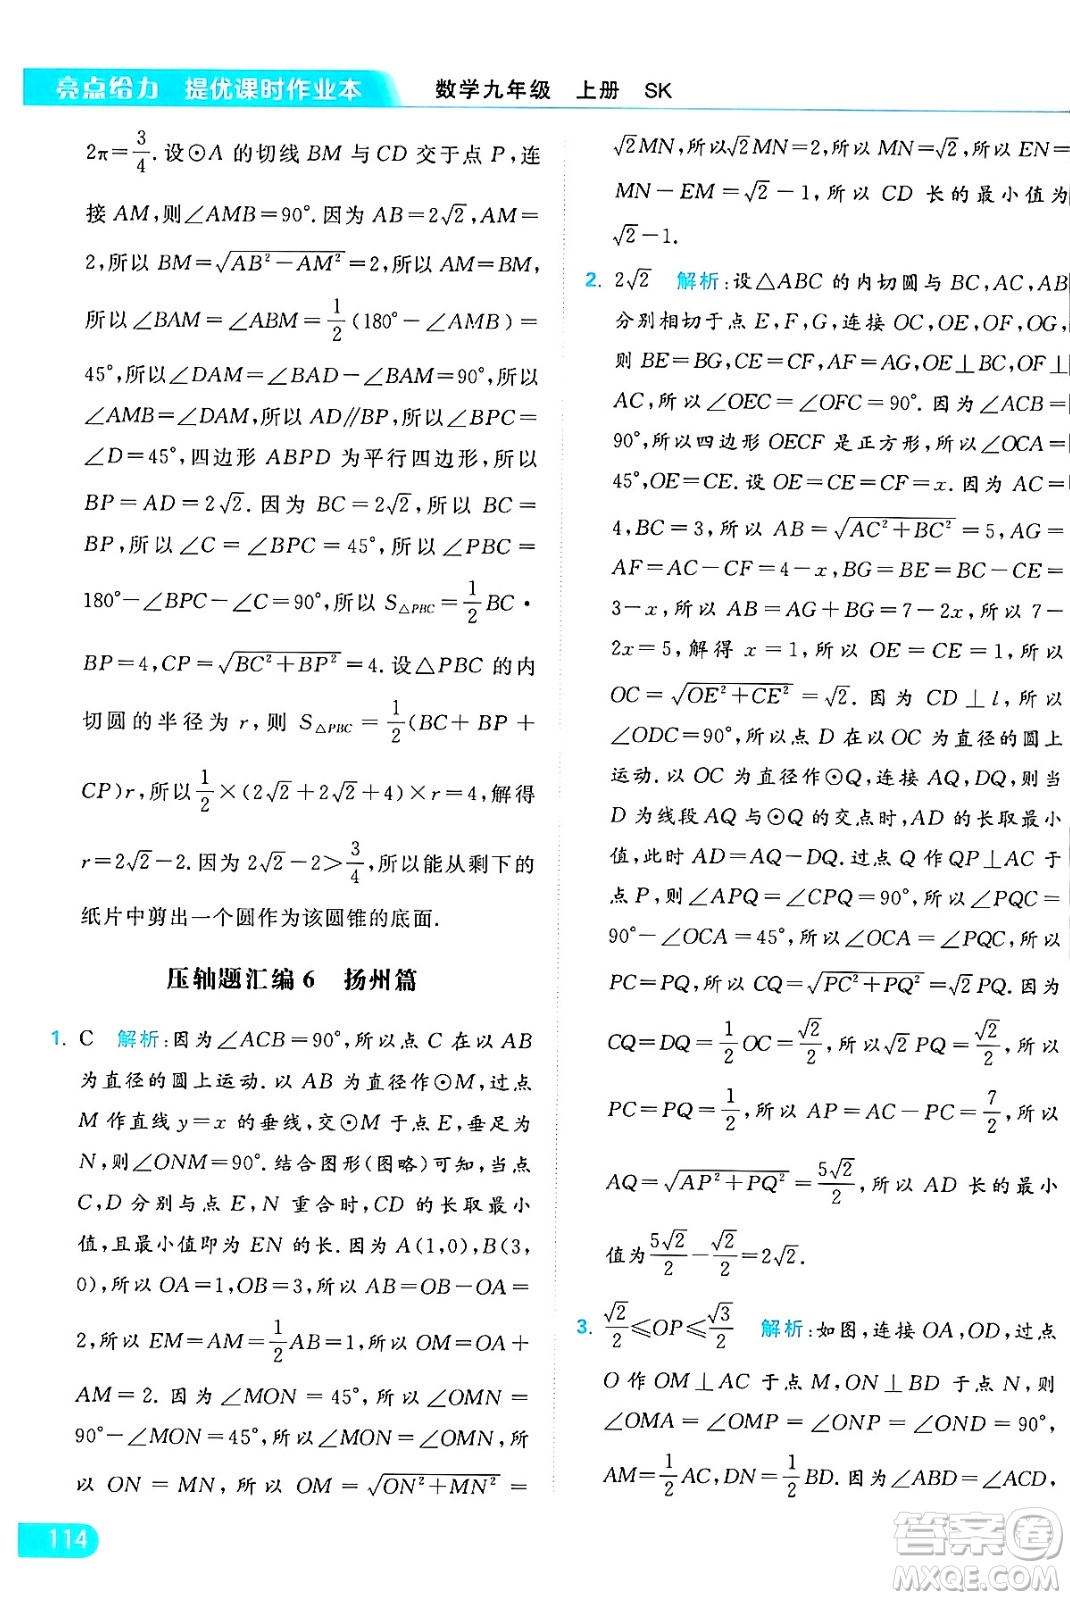 亮点给力 提优课时作业本 数学九年级 上册 SK
2π=3/4.设⊙A 的切线 BM 与 CD 交于点 P,连
接 AM,则∠AMB=90°.因为 AB=2√2,AM=
2,所以 BM=√(AB²-AM²)=2,所以 AM=BM,
所以∠BAM=∠ABM=1/2(180°-∠AMB)=
45°,所以∠DAM=∠BAD-∠BAM=90°,所以
∠AMB=∠DAM,所以 AD∥BP,所以∠BPC=
∠D=45°,四边形 ABPD 为平行四边形,所以
BP=AD=2√2.因为 BC=2√2,所以 BC=
BP,所以∠C=∠BPC=45°,所以∠PBC=
180°-∠BPC-∠C=90°,所以 S△PBC=1/2BC·
BP=4,CP=√(BC²+BP²)=4.设△PBC 的内
切圆的半径为 r,则 S△PBC=1/2(BC+BP+
CP)r,所以1/2×(2√2+2√2+4)×r=4,解得
r=2√2-2.因为 2√2-2>3/4,所以能从剩下的
纸片中剪出一个圆作为该圆锥的底面.
压轴题汇编6 扬州篇
1. C 解析:因为∠ACB=90°,所以点 C 在以 AB
为直径的圆上运动.以 AB 为直径作⊙M,过点
M 作直线 y=x 的垂线,交⊙M 于点 E,垂足为
N,则∠ONM=90°.结合图形(图略)可知,当点
C,D 分别与点 E,N 重合时,CD 的长取最小
值,且最小值即为 EN 的长.因为 A(1,0),B(3,
0),所以 OA=1,OB=3,所以 AB=OB-OA=
2,所以 EM=AM=1/2AB=1,所以 OM=OA+
AM=2.因为∠MON=45°,所以∠OMN=
90°-∠MON=45°,所以∠MON=∠OMN,所
以 ON=MN,所以 OM=√(ON²+MN²)=
√2MN,所以√2MN=2,所以 MN=√2,所以 EN=
MN-EM=√2-1,所以 CD 长的最小值为
√2-1.
2. 2√2 解析:设△ABC 的内切圆与 BC,AC,AB
分别相切于点 E,F,G,连接 OC,OE,OF,OG,
则 BE=BG,CE=CF,AF=AG,OE⊥BC,OF⊥
AC,所以∠OEC=∠OFC=90°.因为∠ACB=
90°,所以四边形 OECF 是正方形,所以∠OCA=
45°,OE=CE.设 OE=CE=CF=x.因为 AC=
4,BC=3,所以 AB=√(AC²+BC²)=5,AG=
AF=AC-CF=4-x,BG=BE=BC-CE=
3-x,所以 AB=AG+BG=7-2x,所以 7-
2x=5,解得 x=1,所以 OE=CE=1,所以
OC=√(OE²+CE²)=√2.因为 CD⊥l,所以
∠ODC=90°,所以点 D 在以 OC 为直径的圆上
运动.以 OC 为直径作⊙Q,连接 AQ,DQ,则当
D 为线段 AQ 与⊙Q 的交点时,AD 的长取最小
值,此时 AD=AQ-DQ.过点 Q 作 QP⊥AC 于
点 P,则∠APQ=∠CPQ=90°,所以∠PQC=
90°-∠OCA=45°,所以∠OCA=∠PQC,所以
PC=PQ,所以 CQ=√(PC²+PQ²)=√2PQ.因为
CQ=DQ=1/2OC=√2/2,所以√2PQ=√2/2,所以
PC=PQ=1/2,所以 AP=AC-PC=7/2,所以
AQ=√(AP²+PQ²)=5√2/2,所以 AD 长的最小
值为5√2/2-√2/2=2√2.
3. √2/2≤OP≤√3/2 解析:如图,连接 OA,OD,过点
O 作 OM⊥AC 于点 M,ON⊥BD 于点 N,则
∠OMA=∠OMP=∠ONP=∠OND=90°,
AM=1/2AC,DN=1/2BD.因为∠ABD=∠CAB=
114
答案圈